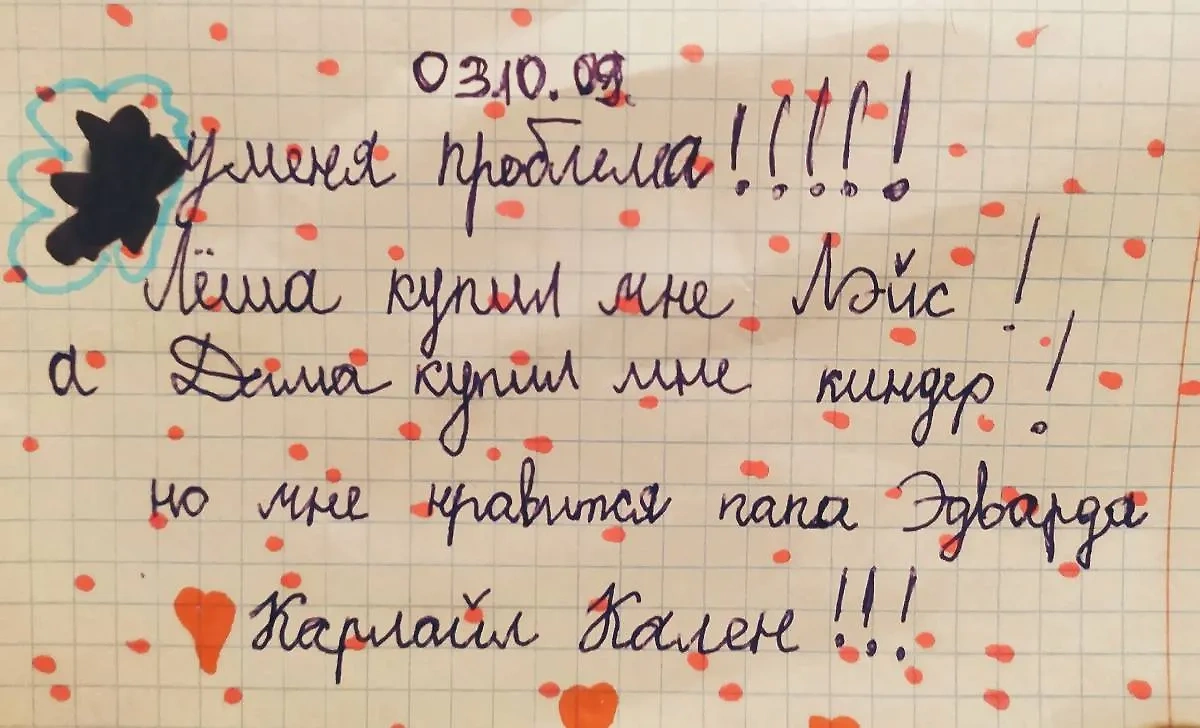 03.10.09.
у меня проблема!!!!!
Лёша купил мне Лэйс!
а Дима купил мне киндер!
но мне нравится папа Эдварда
Карлайл Кален!!!